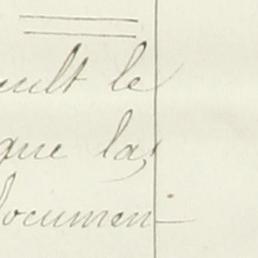 ult le
que las
documen-